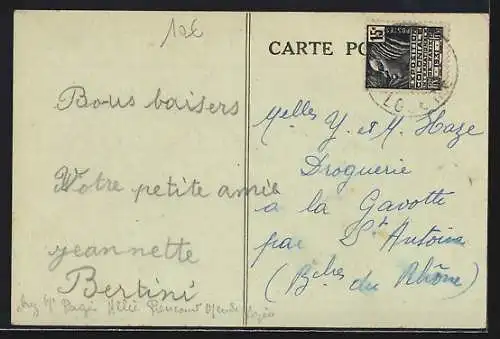 12€
CARTE PO
15c
POSTES
Bons baisers
Votre petite amie
jeannette
Bertini
Melles Y. et M. Haze
Droguerie
a la Gavotte
par St Antoine
(B. ches du Rhône)